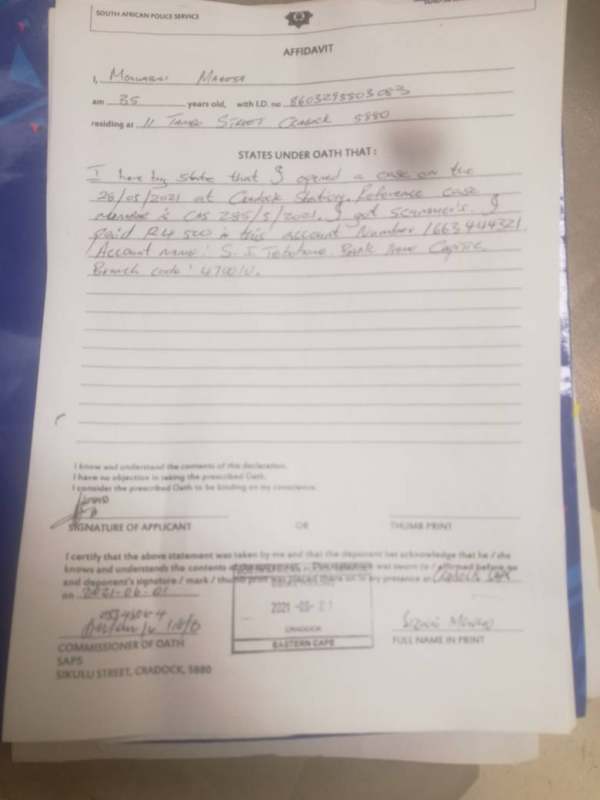 SOUTH AFRICAN POLICE SERVICE
AFFIDAVIT
I,
am 35 years old, with I.D. no 8603295503083
residing at 11 Street Cradock 5880
STATES UNDER OATH THAT :
I here by state that I opened a case on the
26/05/2021 at Cradock Station. Reference case
is CAS 285/5/2021. I got scammer's. I
paid R4 500 in this account Number 1663444321
Account name : S. J Bank Name Capitec
Branch code :
I know and understand the contents of this declaration.
I have no objection in taking the prescribed Oath.
I consider the prescribed Oath to be binding on my conscience.
SIGNATURE OF APPLICANT OR THUMB PRINT
I certify that the above statement was taken by me and that the deponent has acknowledge that he / she
knows and understands the contents was sworn to / affirmed before me
and deponent's signature / mark / thumb print was placed there on in my presence at Cradock
on 2021-06-01
2021 -
CRADOCK
EASTERN CAPE
COMMISSIONER OF OATH FULL NAME IN PRINT
SAPS
SIKULU STREET, CRADOCK, 5880